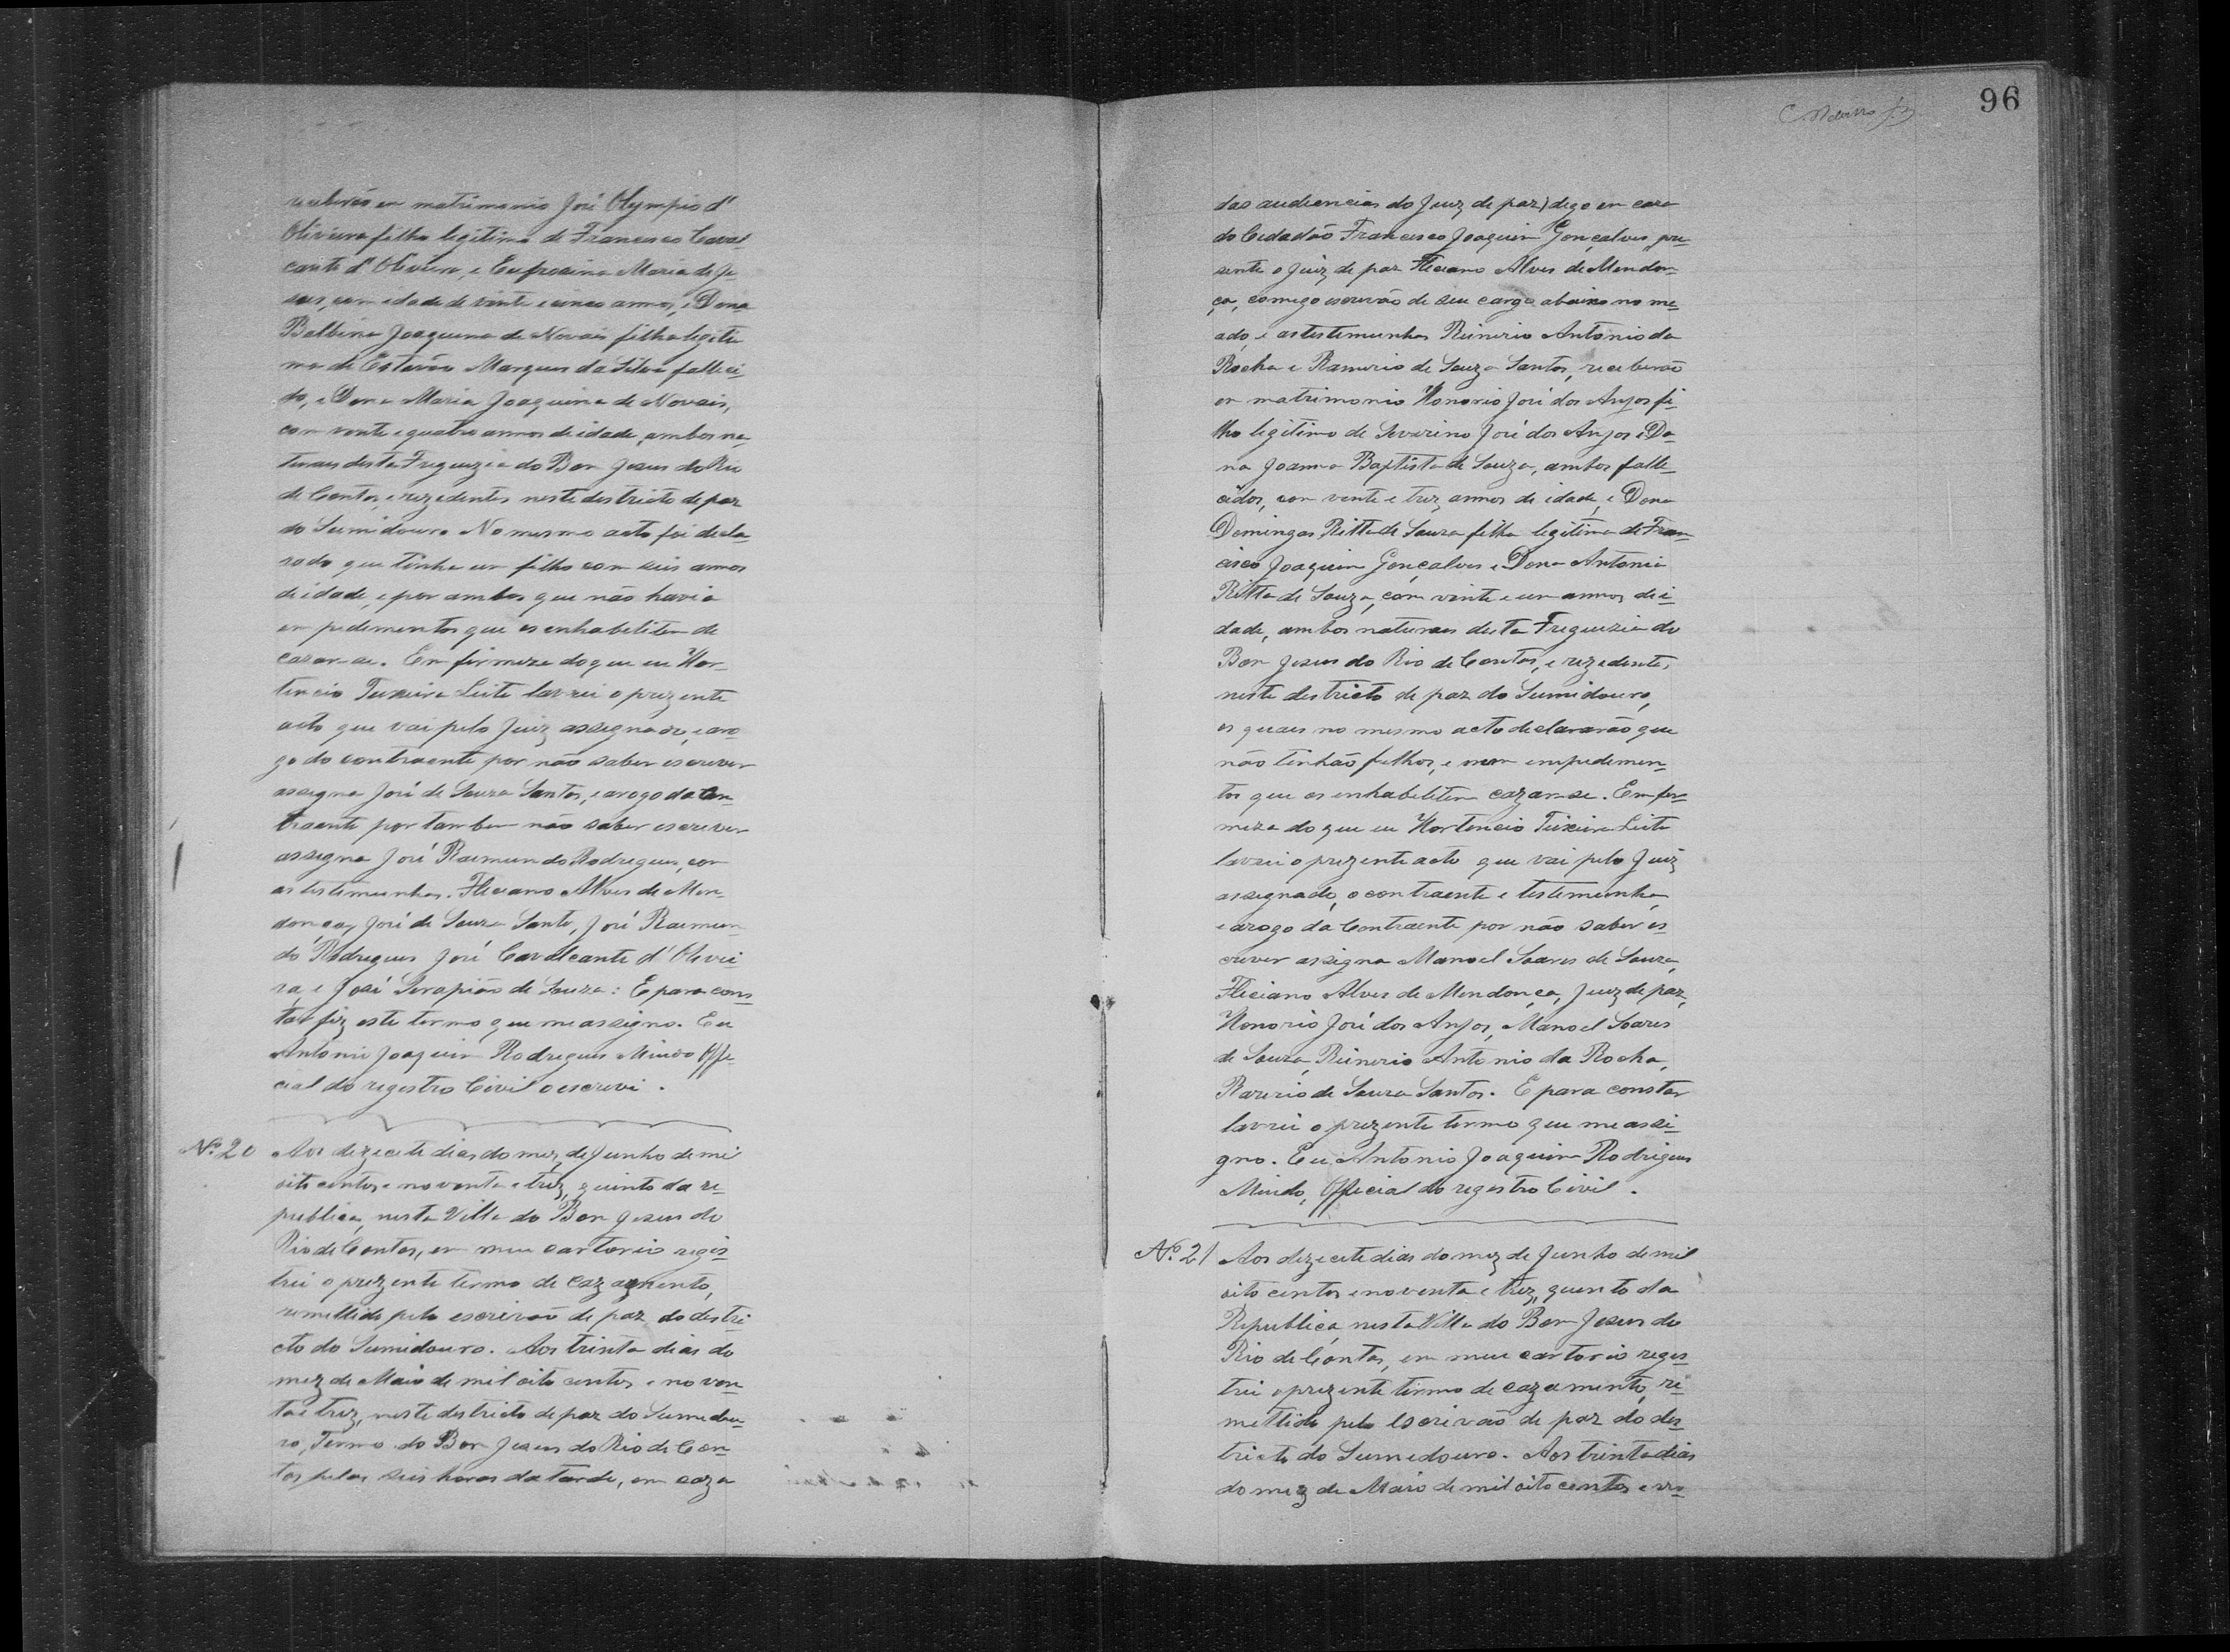 receberão em matrimonio José Olympio d'
Oliviera filho legitimo de Francisco Caval
cante d'Oliveira, e Eufrosina Maria de Je
sus, com idade de vinte e cinco annos, e Dona
Balbina Joaquina de Novais filha legiti
ma de Estevão Marques da Silva falleci
do, e Dona Maria Joaquina de Novais,
com vente e quatro annos de idade, ambos na
turaes desta Freguezia do Bom Jesus do Rio
de Contas, e rezedentes neste destricto de paz
do Sumidouro No mesmo acto foi decla
rado que tinha um filho com seis annos
de idade, e por ambos que não havia
empedimentos que os enhabelitem de
cazar-se. Em firmeza do que eu Hor-
tencio Teixeira Leite lavrei o prezente
acto que vai pelo Juiz assegnado, e aro
go do contraente por não saber escrever
assegna José de Souza Santos, e arogo da Con
traente por tambem não saber escrever
assegna José Raemundo Rodregues, com
as testemunhas. Fleciano Alves de Men-
donca, José de Souza Santo, José Raemun
do Rodregues José Cavalcante d'Olivei
ra, e José Serapião de Souza: E para cons
tar fiz este termo que me assigno. Eu
Antonio Joaquim Rodregues Mindo Offe
cial do registro Civil o escrevi.
Nº 20 Aos dezecete dias do mez de Junho de mil
oito centos e noventa e trez, quinto da re-
publica, nesta Villa do Bom Jesus do
Rio de Contas, em meu cartorio regis
trei o prezente termo de cazamento,
remettido pelo escrivão de paz do destri
cto do Sumidouro. Aos trinta dias do
mez de Maio de mil oito centos e noven
ta e trez, neste destricto de paz do Sumedou-
ro, Termo do Bom Jesus do Rio de Con
tas pelas seis horas da tarde, em caza
96
das audiencias do Juiz de paz) dego em caza
do Cedadão Francisco Joaquim Gonçalves pre
sente o Juiz de paz Fleciano Alves de Mendon
ça, comego escrivão de seu cargo abaixo no me
ado, e as testemunhas Reinerio Antonio da
Rocha e Ramerio de Souza Santos, receberão
em matrimonio Honorio José dos Anjos fi
lho legitimo de Severino José dos Anjos e Do
na Joanna Baptista de Souza, ambos falle
cidos, com vente e trez annos de idade, e Dona
Domingas Ritta de Souza filha legitima de Fran
cisco Joaquim Gonçalves e Dona Antonia
Ritta de Souza, com vinte e um annos de i
dade, ambos naturaes desta Freguezia do
Bom Jesus do Rio de Contas, e rezedentes
neste destricto de paz do Sumidouro,
os quaes no mesmo acto declararão que
não tinhão filhos, e nem empedemen
tos que os enhabelitem cazar-se. Em fer
meza do que eu Hortencio Teixeira Leite
lavrei o prezente acto que vai pelo Juiz
assegnado, o contraente e testemunha
e arogo da Contraente por não saber es
crever assigna Manoel Soares de Souza,
Fleciano Alves de Mendonça, Juiz de paz,
Honorio José dos Anjos, Manoel Soares
de Souza, Reinerio Antonio da Rocha,
Ramerio de Souza Santos. E para constar
lavrei o prezente termo que me assi
gno. Eu Antonio Joaquim Rodrigues
Mindo, Official do registro Civil.
Nº 21 Aos dezecete dias do mez de Junho de mil
oito centos e noventa e trez, quento da
Republica, nesta Villa do Bom Jesus do
Rio de Contas, em meu cartorio reges
trei o prezente termo de cazamento, re
mettido pelo Escrivão de paz do des
tricto do Sumedouro. Aos trinta dias
do mez de Maio de mil oito centos e no